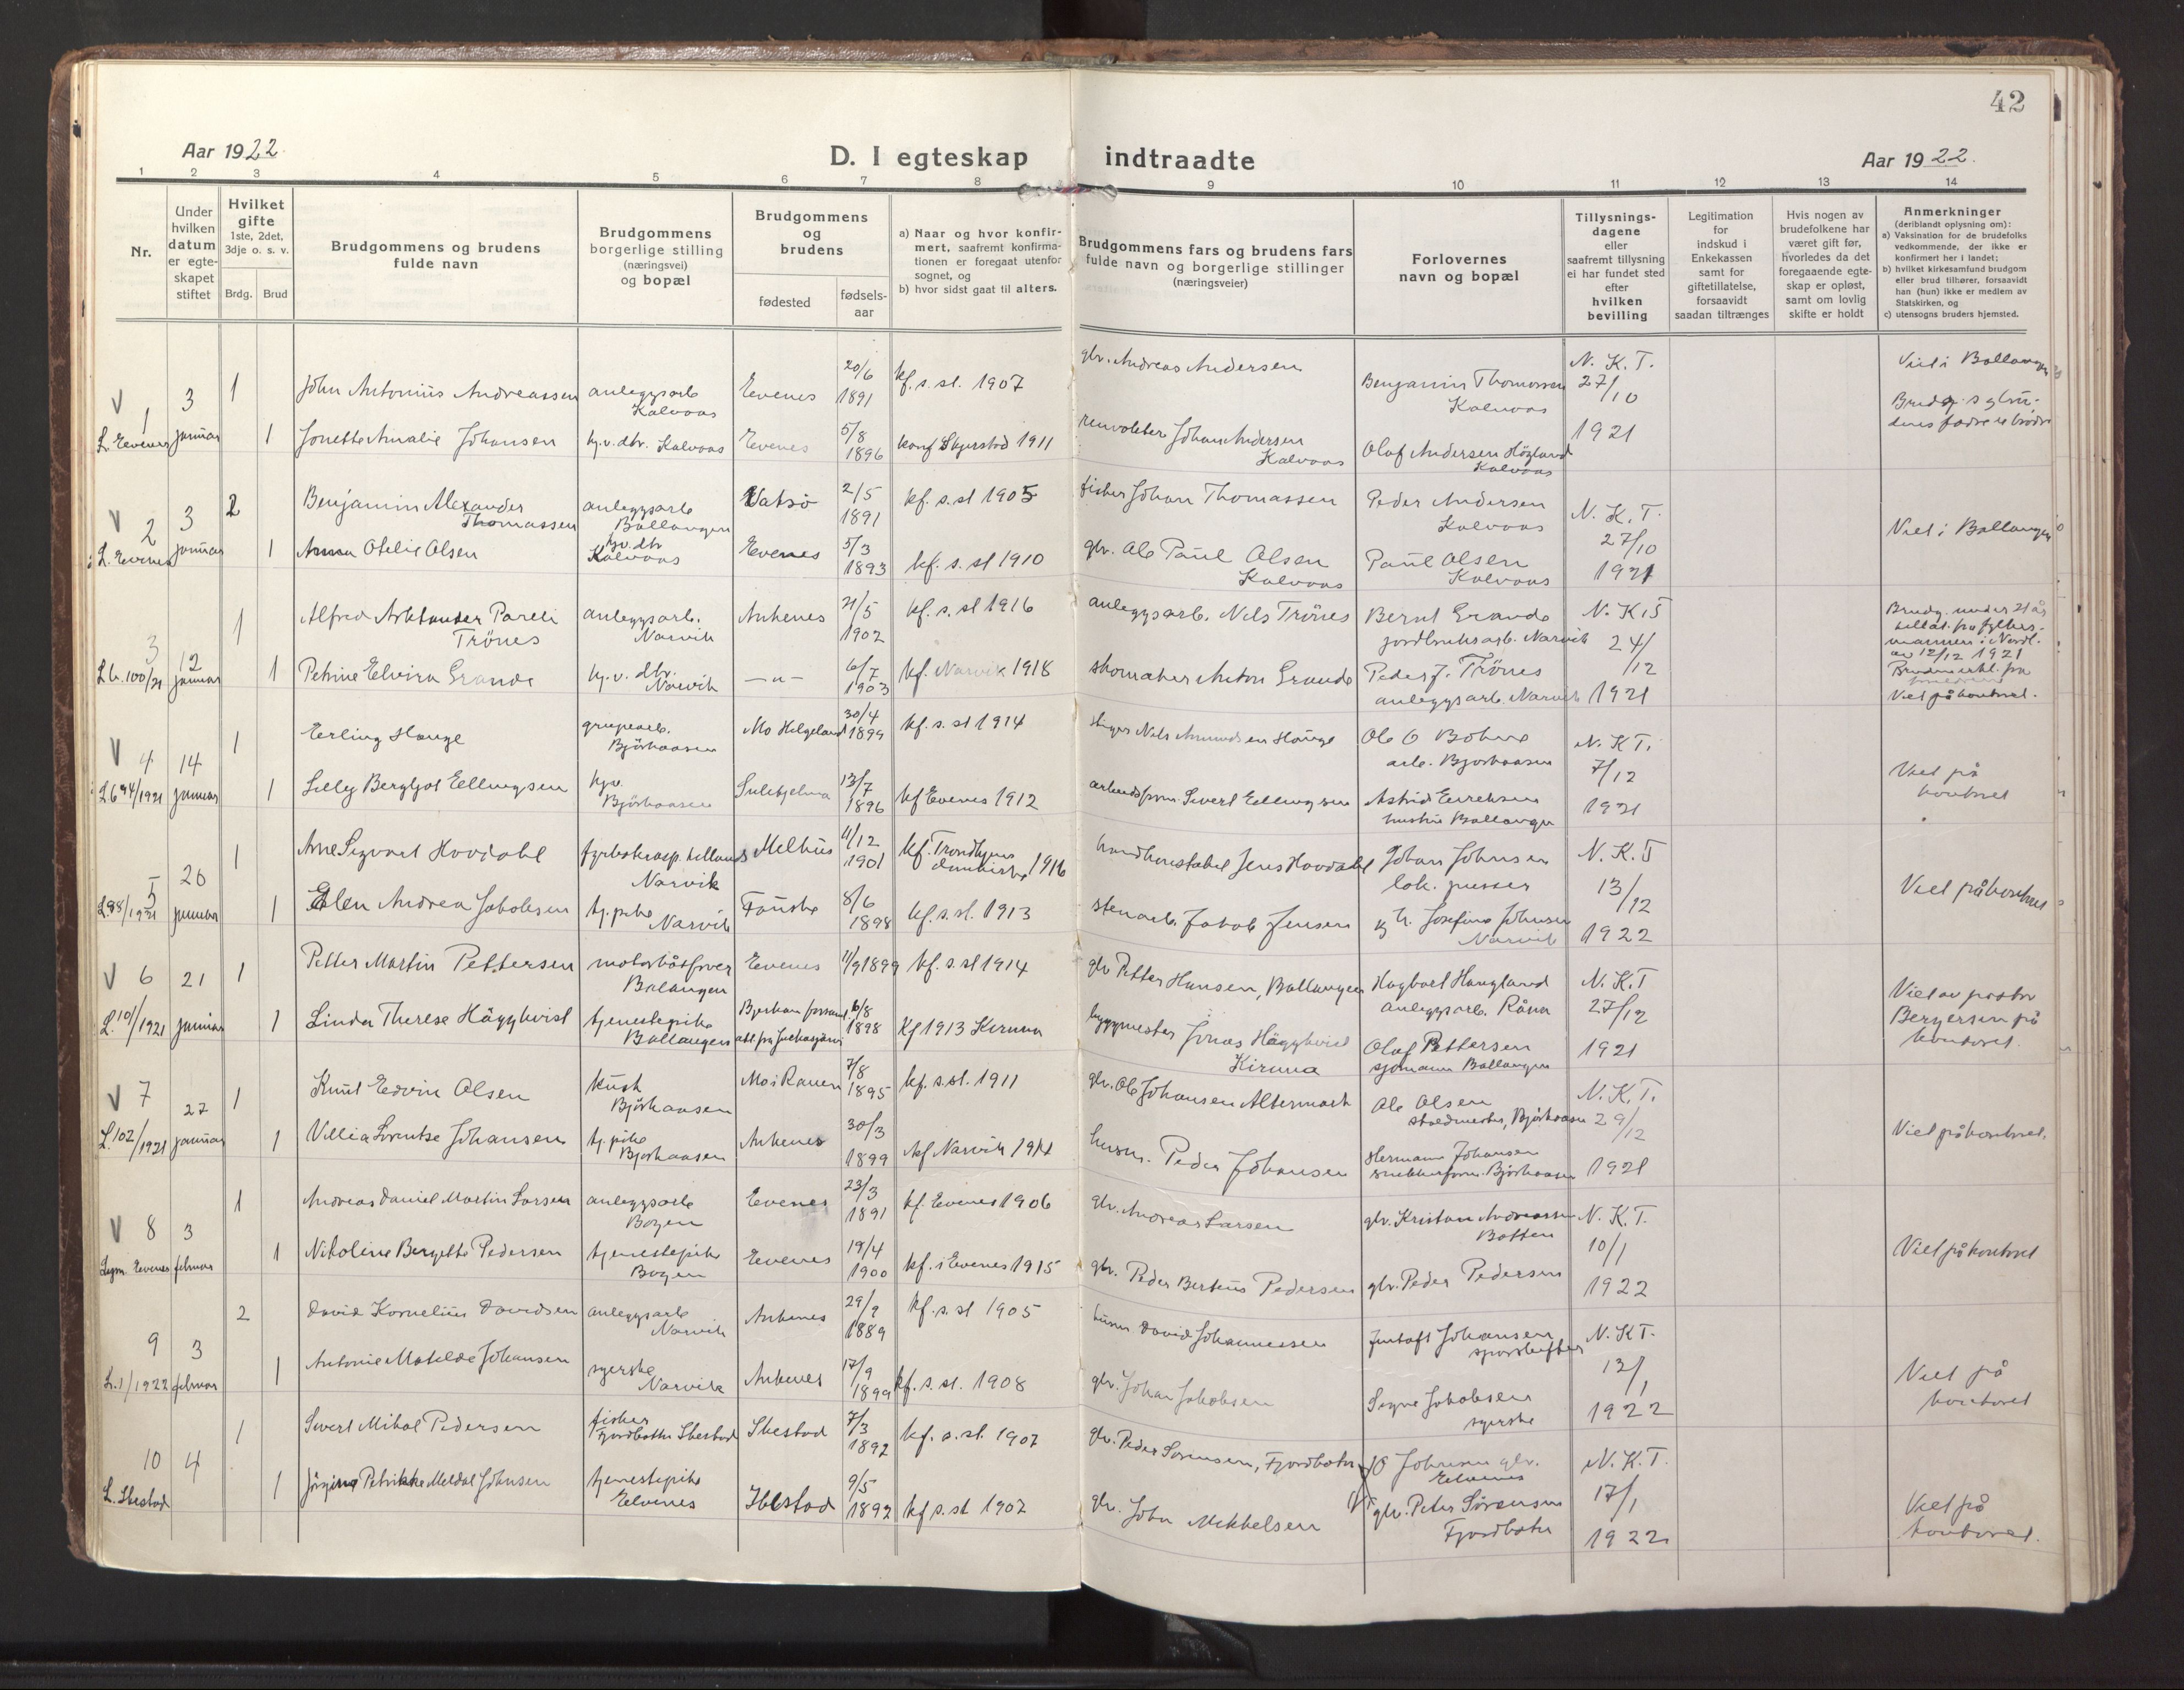 42
Aar 1922
D. I egteskap indtraadte
Aar 1922.
1 2 3 4 5 6 7 8 9 10 11 12 13 14
Nr.
Under hvilken datum er egteskapet stiftet
Hvilket gifte 1ste, 2det, 3dje o. s. v.
Brdg. Brud
Brudgommens og brudens fulde navn
Brudgommens borgerlige stilling (næringsvei) og bopæl
Brudgommens og brudens
fødested
fødsels-aar
a) Naar og hvor konfirmert, saafremt konfirmationen er foregaat utenfor sognet, og
b) hvor sidst gaat til alters.
Brudgommens fars og brudens fars fulde navn og borgerlige stillinger (næringsveier)
Forlovernes navn og bopæl
Tillysningsdagene eller saafremt tillysning ei har fundet sted efter hvilken bevilling
Legitimation for indskud i Enkekassen samt for giftetillatelse, forsaavidt saadan tiltrænges
Hvis nogen av brudefolkene har været gift før, hvorledes da det foregaaende egteskap er opløst, samt om lovlig skifte er holdt
Anmerkninger (deriblandt oplysning om):
a) Vaksination for de brudefolks vedkommende, der ikke er konfirmert her i landet;
b) hvilket kirkesamfund brudgom eller brud tilhører, forsaavidt han (hun) ikke er medlem av Statskirken, og
c) utensogns bruders hjemsted.
V 1 L. Evenes 3 januar
1 John Antonius Andreassen anleggsarb Kalvaas Evenes 20/6 1891 kf. s. st. 1907 gbr. Andreas Andersen Benjamin Thomassen Kalvaas N. K. T. 27/10 1921 Viet i Ballangen
1 Jonette Amalie Johansen hj. v. dtr. Kalvaas Evenes 5/8 1896 konf Skjerstad 1911 Johan Andersen Kalvaas Olaf Andersen Högland Kalvaas Brudg.s og brudens fædre er brødre
V 2 L. Evenes 3 januar
2 Benjamin Alexander Thomassen anleggsarb Ballangen Vatsö 2/5 1891 kf. s. st 1905 fisker Johan Thomassen Peder Andersen Kalvaas N. K. T. 27/10 1921 Viet i Ballangen
1 Anna Otelie Olsen hj. v. dtr Kalvaas Evenes 5/3 1893 kf. s. st 1910 gbr. Ole Paul Olsen Kalvaas Paul Olsen Kalvaas
3 Lb. 100/21 12 januar
1 Alfred Trönes anleggsarb. Narvik Ankenes 21/5 1902 kf. s. st 1916 anleggsarb. Nils Trönes Bernt Grande jordbruksarb. Narvik N. K. T 24/12 1921 Brudg. under 21 år fra fylkesmannen i Nordl. av 12/12 1921
1 Petrine Elvira Grande hj. v. dtr. Narvik — " — 6/7 1903 kf. Narvik 1918 skomaker Anton Grande Peder J. Trönes anleggsarb. Narvik Viet på kontoret.
V 4 Lb 94/1921 14 januar
1 Erling Hauge grubearb. Bjørkaasen Mo Helgeland 30/4 1899 kf. s. st 1914 stiger Nils Amundsen Hauge Ole O Böhne arb. Bjorkaasen N. K T. 7/12 1921 Viet på kontoret
1 Lilly Bergljot Ellingsen hjv. Bjørkaasen Sulitjelma 13/7 1896 kf Evenes 1912 arbeidsform. Sivert Ellingsen Astrid hustru Ballangen
5 L. 98/1921 20 januar
1 Arne Sigvart Hovdahl Narvik Melhus 4/12 1901 kf. Trondhjems domkirke 1916 Jens Hovdahl Johan Johnsen lok. pusser N. K. T 13/12 1922 Viet på kontoret
1 Elen Andrea Jakobsen tj. pike Narvik Fauske 8/6 1898 kf. s. st. 1913 stenarb. Jakob Jensen Josefine Johnsen Narvik
V 6 L. 101/1921 21 januar
1 Petter Martin Pettersen motorbåtfører Balangen Evenes 11/9 1899 kf. s. st 1914 gbr Petter Hansen, Ballangen Hagbart Haugland anleggsarb. Råna N. K. T 27/12 1921 Viet av pastor Bergersen på kontoret.
1 Linda Therese Häggkvist tjenestepike Ballangen 6/8 1898 kf 1913 Kiruna byggmester Jonas Häggkvist Kiruna Olaf Pettersen sjömann Ballangen
V 7 L. 102/1921 27 januar
1 Knut Edvin Olsen kusk Bjørkaasen Mo i Ranen 7/8 1895 kf. s. st. 1911 gbr. Ole Johansen Altermark Ole Olsen Bjørkaasen N. K. T. 29/12 1921 Viet på kontoret.
1 Villia Lorentse Johansen tj. pike Bjorkaasen Ankenes 30/3 1899 kf Narvik 1914 husm. Peder Johansen Hermann Johansen Bjørkaasen
V 8 Legm. Evenes 3 februar
1 Andreas Daniel Martin Larsen anleggsarb Bogen Evenes 23/3 1891 kf. Evenes 1906 gbr. Andreas Larsen gbr. Kristian Andreassen Botten N. K. T. 10/1 1922 Viet på kontoret
1 Nikoline Bergette Pedersen tjenestepike Bogen Evenes 19/4 1900 kf. i Evenes 1915 gbr. Peder Berteus Pedersen gbr. Peder Pedersen
9 L. 1/1922 3 februar
2 David Kornelius Davidsen anleggsarb Narvik Ankenes 29/9 1889 kf. s. st 1905 husm David Johannessen Johansen sporskifter N. K T. 13/1 1922 Viet på kontoret
1 Antonie Matelde Johansen syerske Narvik Ankenes 17/9 1899 kf. s. st. 1908 gbr. Johan Jakobsen Signe Jakobsen syerske
10 L. Ibestad 4
1 Sivert Mikal Pedersen fisker Fjordbotn Ibestad Ibestad 7/3 1892 kf. s. st. 1907 gbr. Peder Sørensen, Fjordbotn Johnsen gbr. Elvenes N. K. T. 17/1 1922 Viet på kontoret.
1 Jörgine Petrikke Meldal Johnsen tjenestepike Elvenes Ibestad 9/5 1892 kf s. st 1907 gbr. John Mikkelsen gbr. Peter Sörensen Fjordbotn